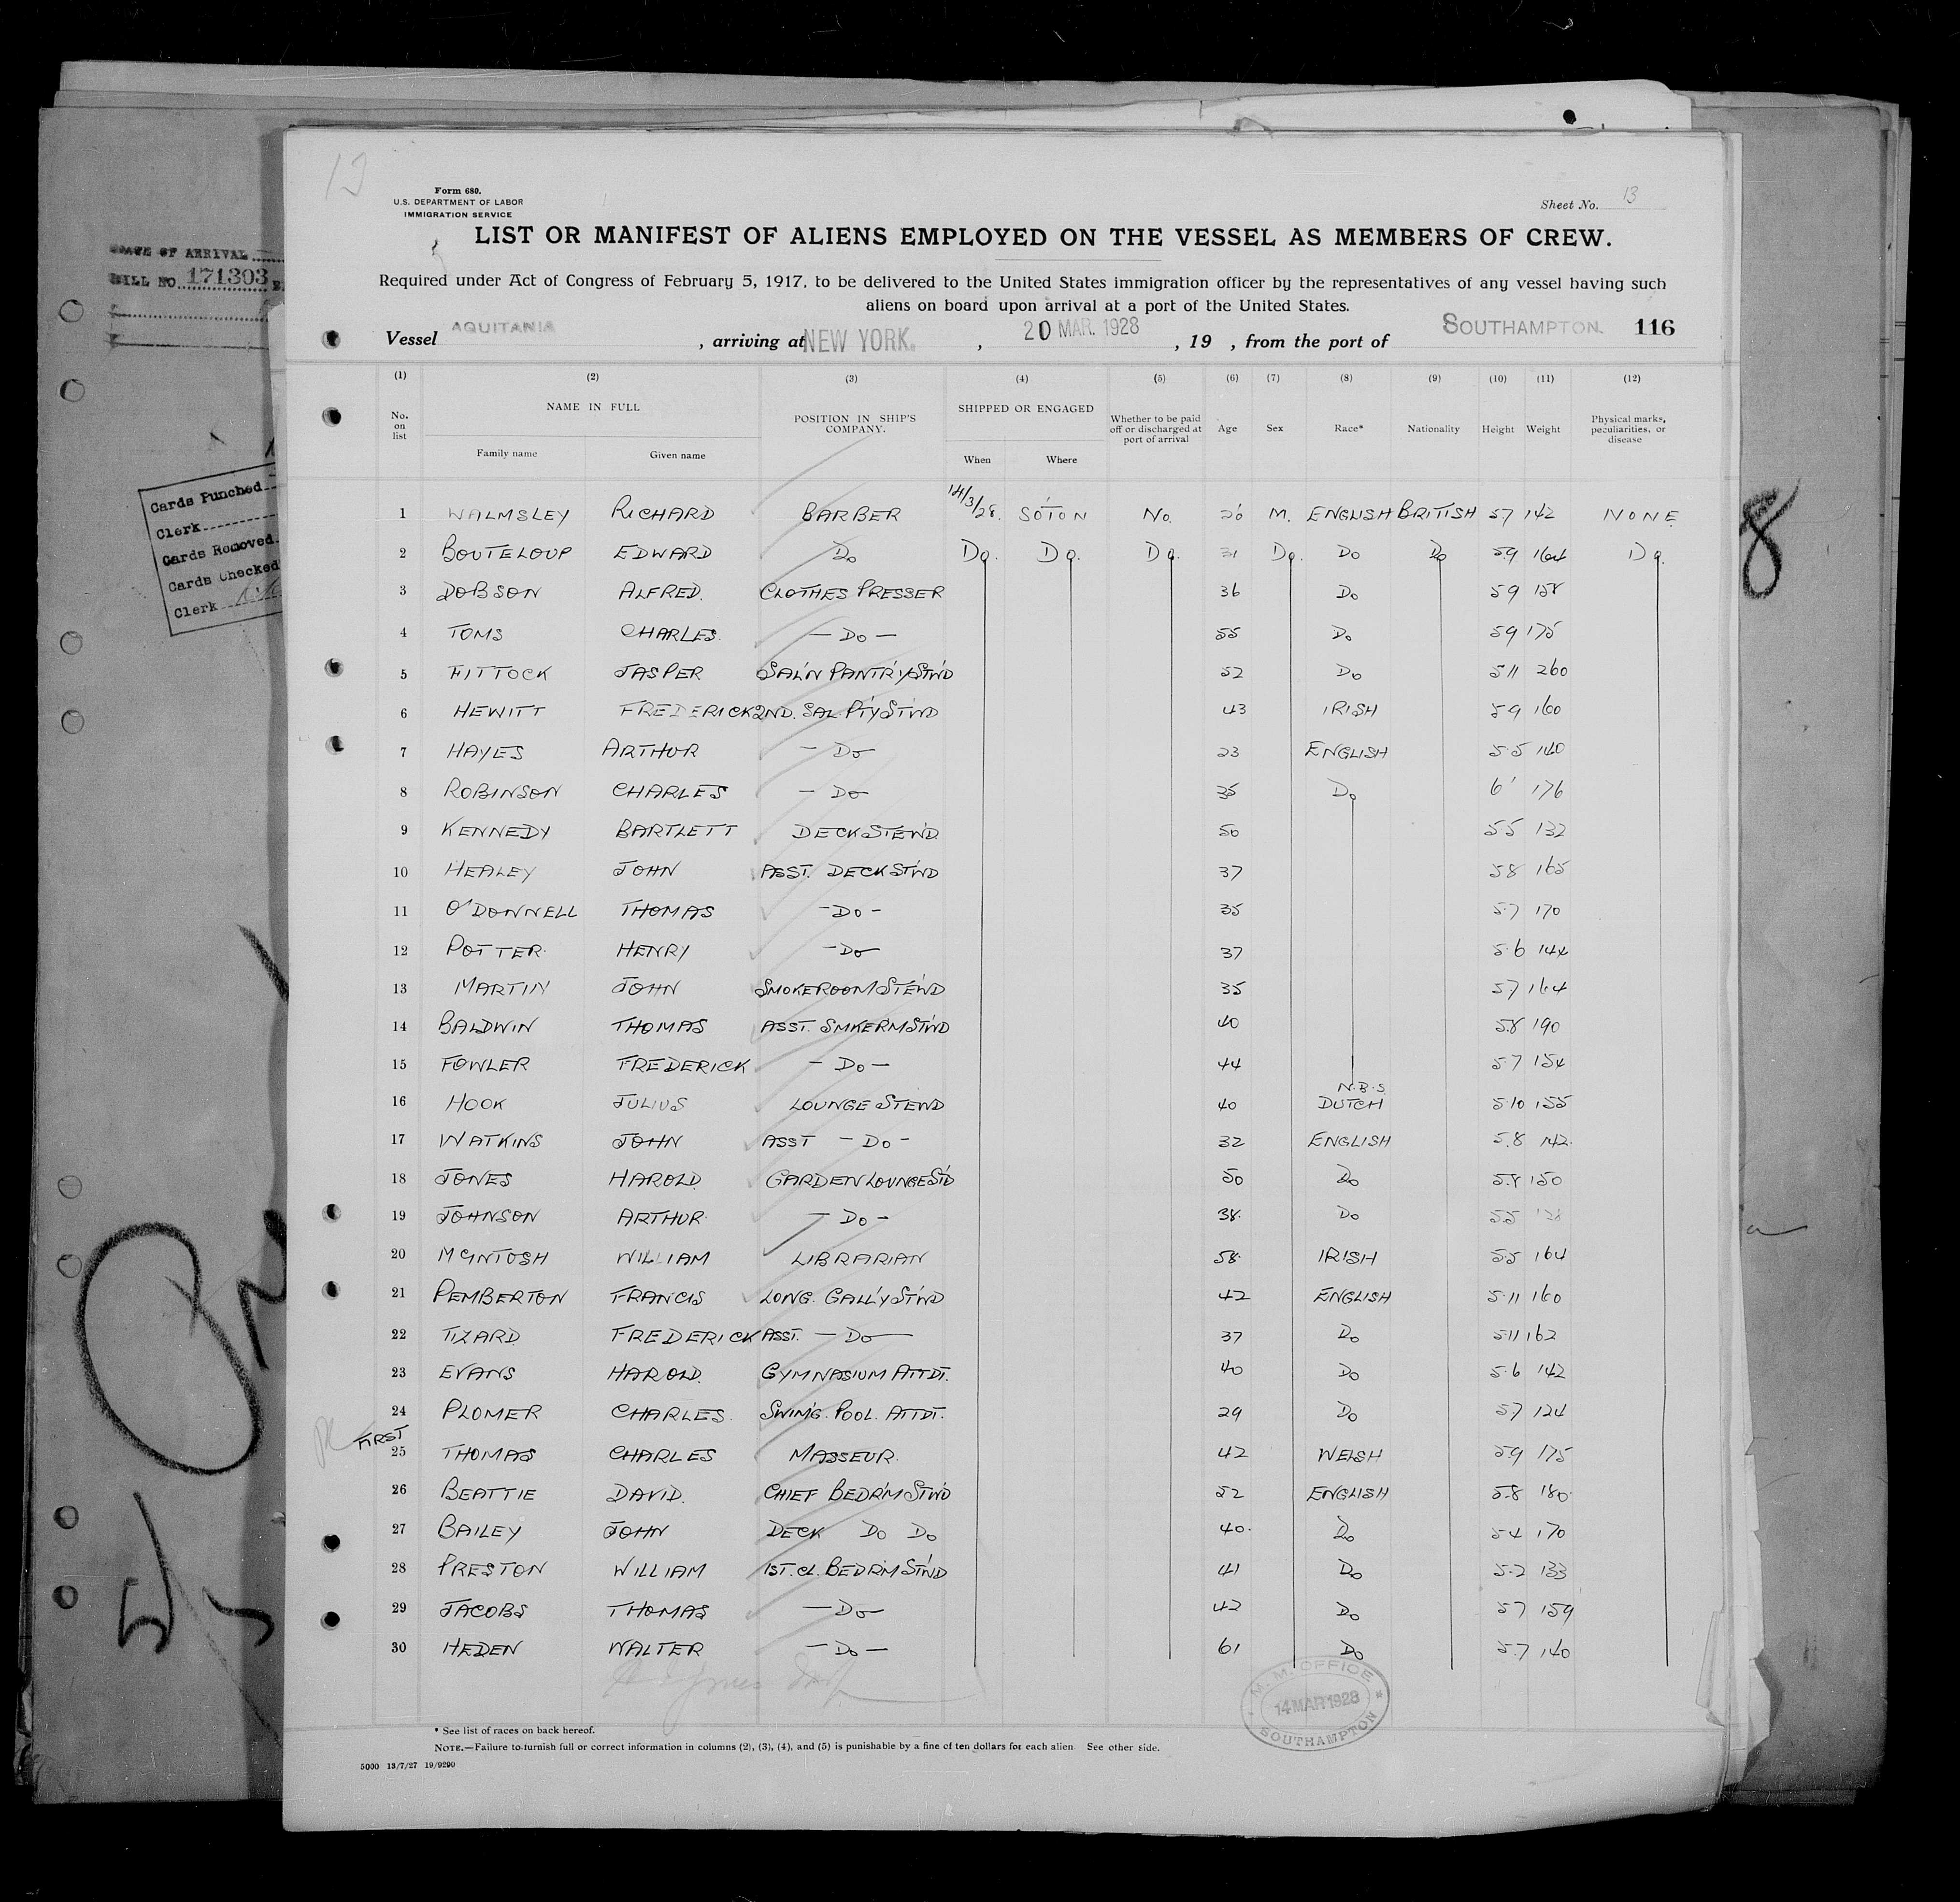 13
Form 680.
U.S. DEPARTMENT OF LABOR
IMMIGRATION SERVICE
Sheet No. 13
LIST OR MANIFEST OF ALIENS EMPLOYED ON THE VESSEL AS MEMBERS OF CREW.
Required under Act of Congress of February 5, 1917, to be delivered to the United States immigration officer by the representatives of any vessel having such
aliens on board upon arrival at a port of the United States.
Vessel AQUITANIA, arriving at NEW YORK. , 20 MAR. 1928, 19 , from the port of SOUTHAMPTON. 116
(1) (2) (3) (4) (5) (6) (7) (8) (9) (10) (11) (12)
No. on list NAME IN FULL Family name Given name POSITION IN SHIP'S COMPANY. SHIPPED OR ENGAGED When Where Whether to be paid off or discharged at port of arrival Age Sex Race* Nationality Height Weight Physical marks, peculiarities, or disease
1 WALMSLEY RICHARD BARBER 14/3/28. SOTON No. 26 M. ENGLISH BRITISH 57 142 NONE
2 BOUTELOUP EDWARD Do Do. Do. Do. 31 Do. Do Do 59 164 Do.
3 DOBSON ALFRED. CLOTHES PRESSER 36 Do 59 158
4 TOMS CHARLES. — Do — 55 Do 59 175
5 FITTOCK JASPER SAL'N PANTR'Y ST'WD 52 Do 511 260
6 HEWITT FREDERICK 2ND. SAL. P'TY ST'WD 43 IRISH 59 160
7 HAYES ARTHUR — Do — 23 ENGLISH 5.5 140
8 ROBINSON CHARLES — Do — 35 Do 6' 176
9 KENNEDY BARTLETT DECK STEW'D 50 55 132
10 HEALEY JOHN ASST. DECK ST'WD 37 58 165
11 O'DONNELL THOMAS — Do — 35 5.7 170
12 POTTER HENRY — Do — 37 5.6 144
13 MARTIN JOHN SMOKEROOM STEW'D 35 57 164
14 BALDWIN THOMAS ASST. SMKERM ST'WD 40 5.8 190
15 FOWLER FREDERICK — Do — 44 5.7 154
N.B.S.
16 HOOK JULIUS LOUNGE STEWD 40 DUTCH 5.10 155
17 WATKINS JOHN ASST — Do — 32 ENGLISH 5.8 142.
18 JONES HAROLD. GARDEN LOUNGE ST'D 50 Do 5.8 150
19 JOHNSON ARTHUR. — Do — 38. Do 55
20 McINTOSH WILLIAM LIBRARIAN 58. IRISH 5.5 164
21 PEMBERTON FRANCIS LONG. GALL'Y ST'WD 42 ENGLISH 5.11 160
22 TIZARD. FREDERICK ASST. — Do — 37 Do 5.11 162
23 EVANS HAROLD. GYMNASIUM ATTDT. 40 Do 5.6 142
24 PLOMER CHARLES. SWIM'G. POOL. ATTDT. 29 Do 57 124
FIRST
25 THOMAS CHARLES MASSEUR. 42 WELSH 5.9 175
26 BEATTIE DAVID. CHIEF BEDR'M ST'WD 52 ENGLISH 5.8 180.
27 BAILEY JOHN DECK Do Do 40. Do 5.4 170
28 PRESTON WILLIAM 1ST. CL. BEDRM ST'WD 41 Do 5.2 133
29 JACOBS THOMAS — Do — 42 Do 57 159
30 HEDEN WALTER — Do — 61 Do 5.7 140
I.M.M. OFFICE
14 MAR 1928
SOUTHAMPTON
* See list of races on back hereof.
NOTE.—Failure to furnish full or correct information in columns (2), (3), (4), and (5) is punishable by a fine of ten dollars for each alien. See other side.
5000 13/7/27 19/9290
OF ARRIVAL
BILL NO. 171303
Cards Punched
Clerk
Cards Removed
Cards Checked
Clerk
8